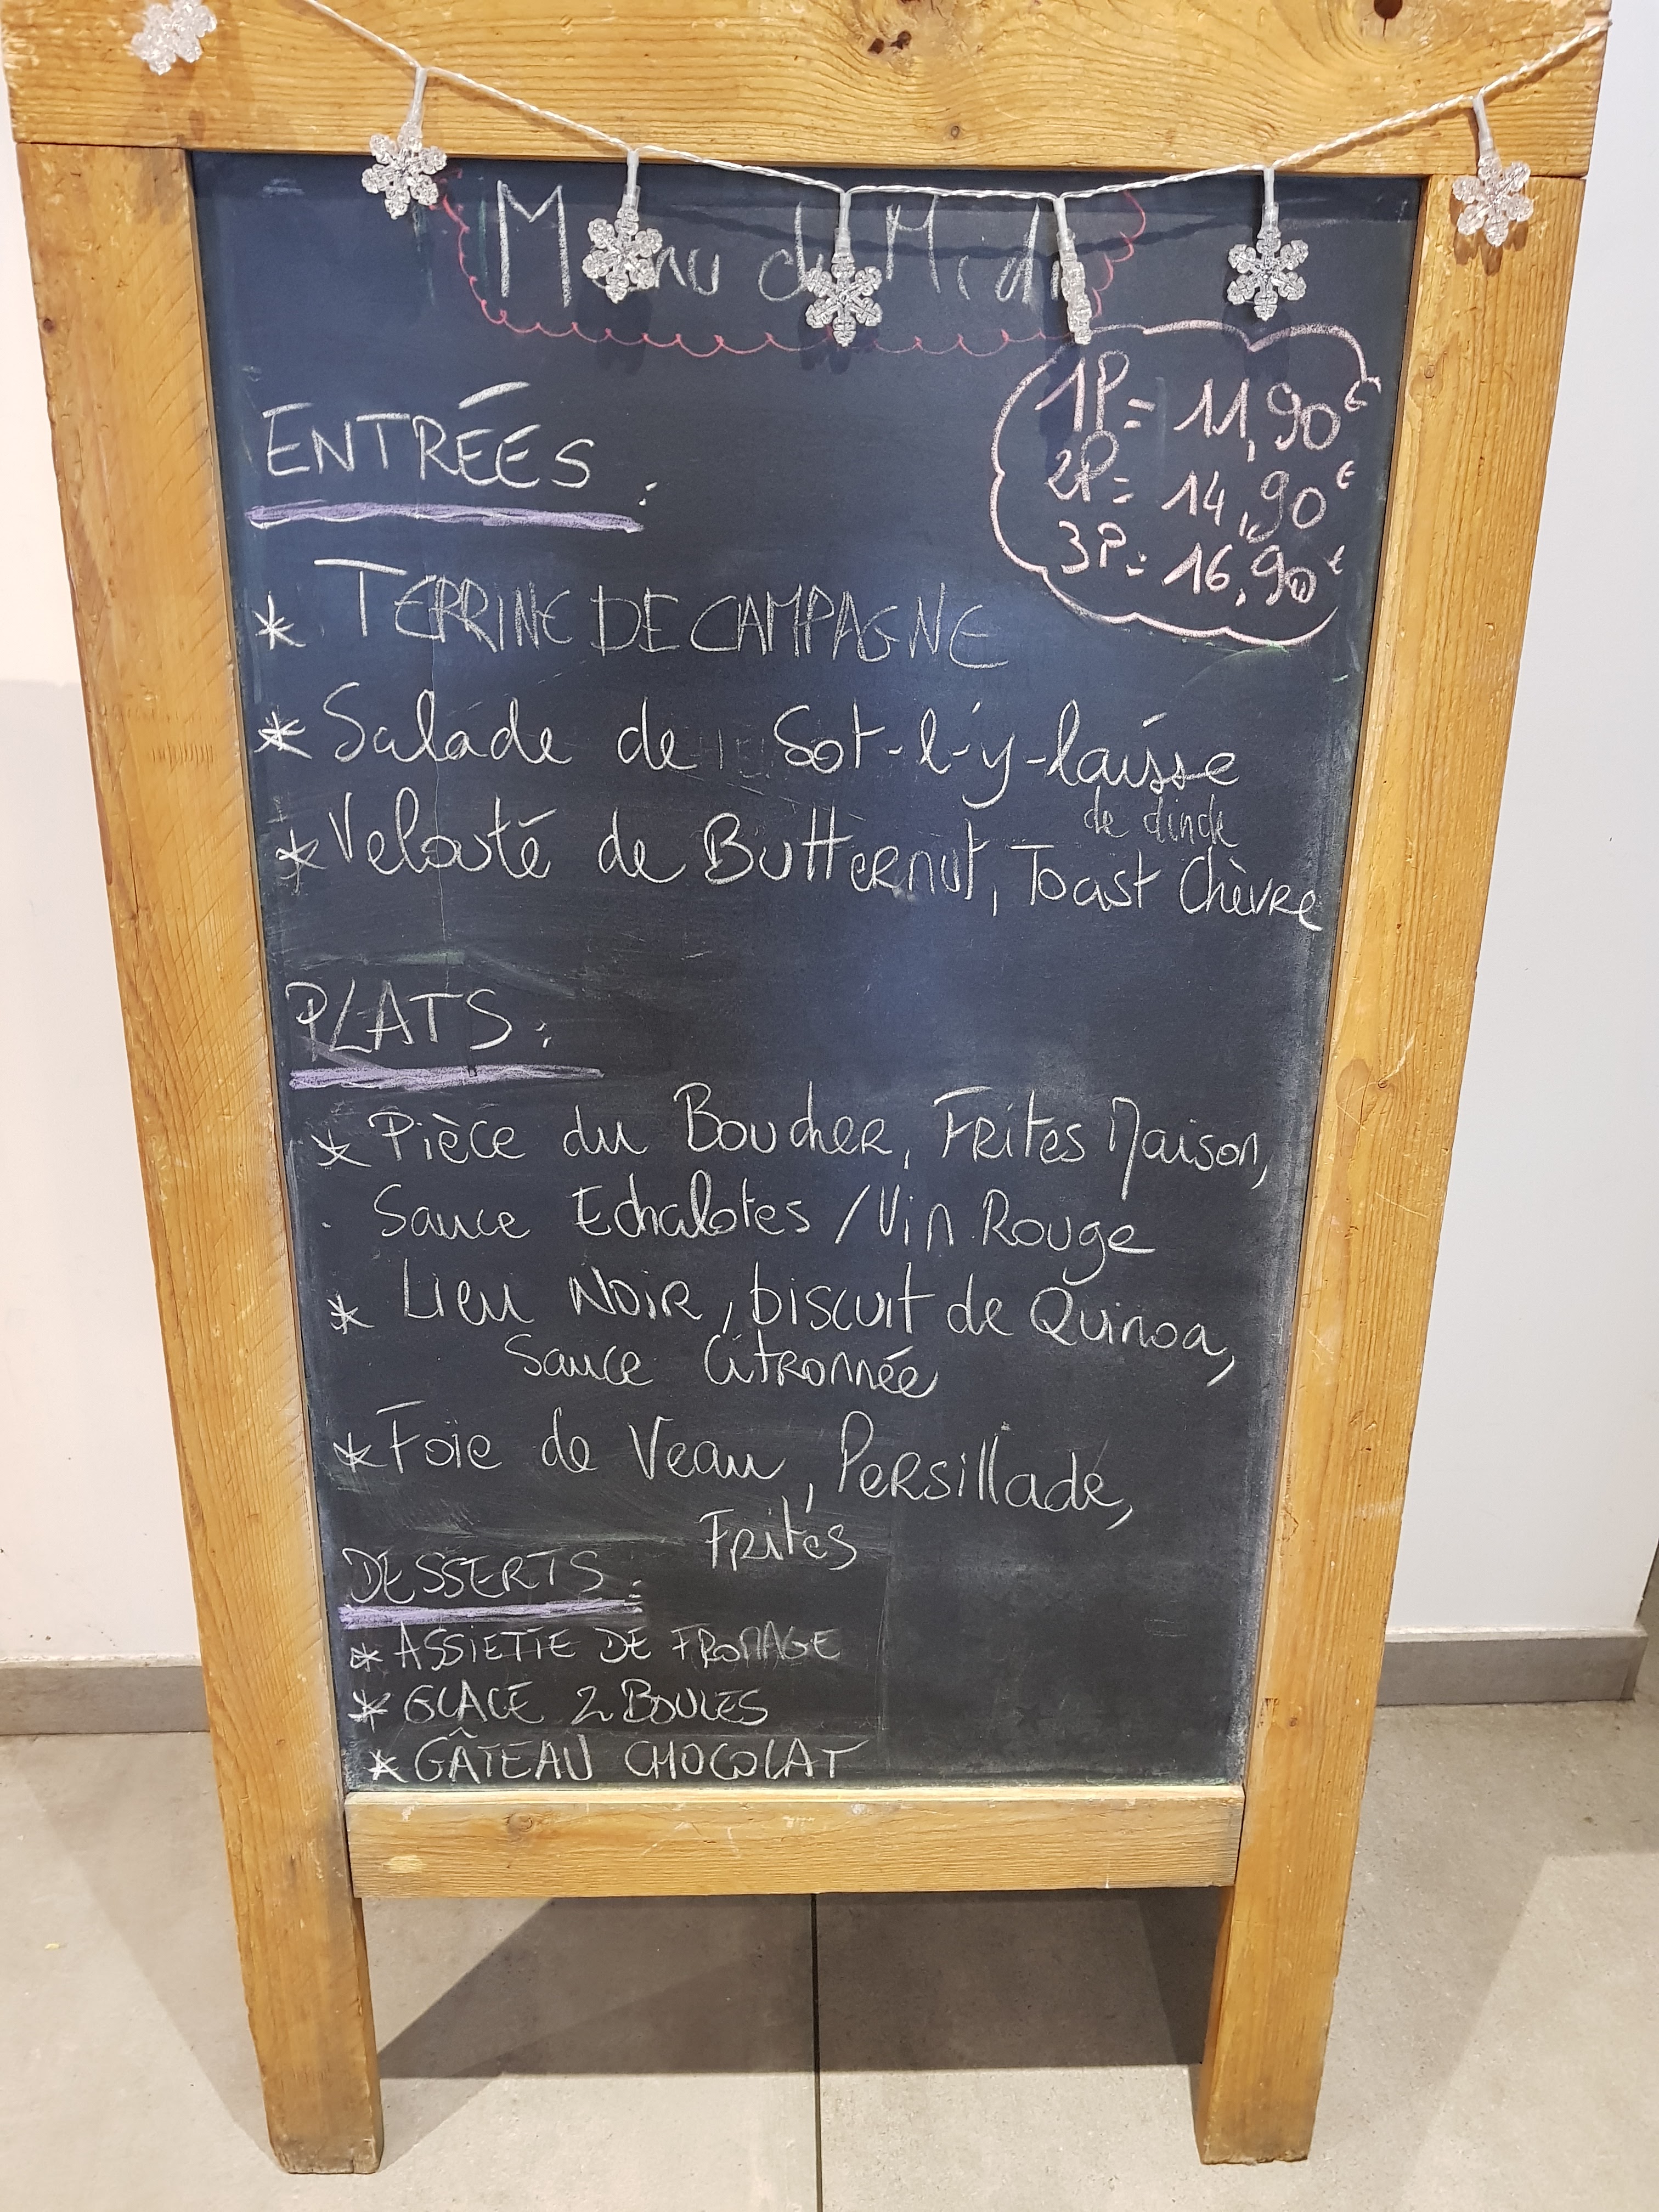 Menu du Midi
1P = 11,90€
2P = 14,90€
3P = 16,90€
ENTRÉES :
* TERRINE DE CAMPAGNE
* Salade de Sot-l-'y-laisse
de dinde
* Velouté de Butternut, Toast Chèvre
PLATS :
* Pièce du Boucher, Frites Maison,
Sauce Echalotes / Vin Rouge
* Lieu Noir, biscuit de Quinoa,
Sauce Citronnée
* Foie de Veau, Persillade,
Frites
DESSERTS :
* ASSIETTE DE FROMAGE
* GLACE 2 BOULES
* GÂTEAU CHOCOLAT